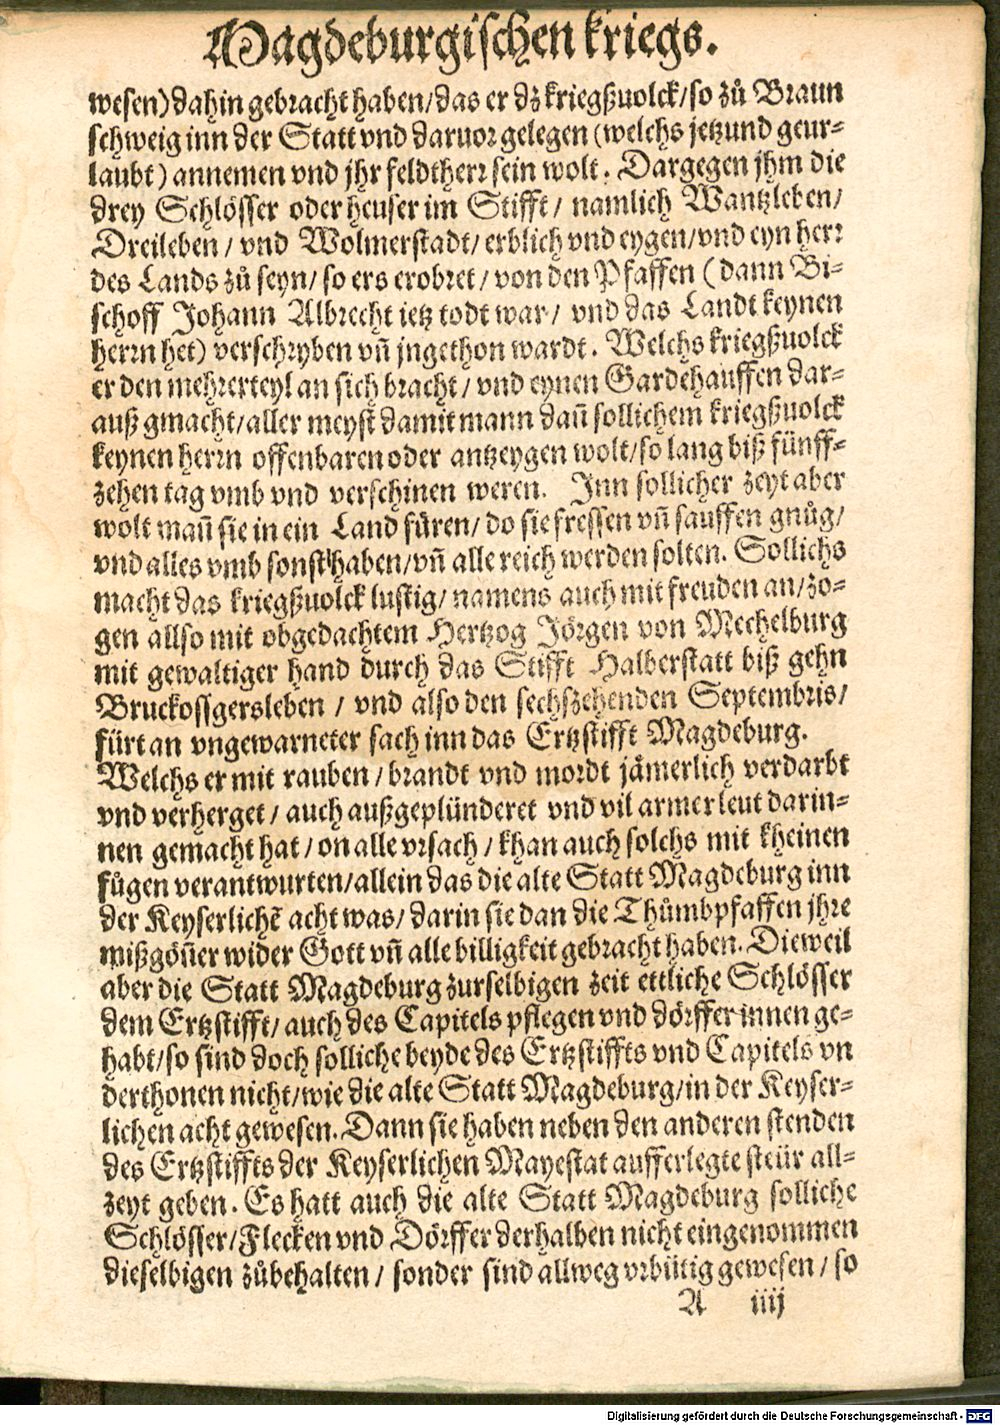 Magdeburgischen kriegs.
wesen) dahin gebracht haben/ das er dz kriegßuolck/ so zů Braun
schweig inn der Statt vnd daruor gelegen (welchs jetzund geur-
laubt) annemen vnd jhr feldtherr sein wolt. Dargegen jhm die
drey Schlösser oder heuser im Stifft/ namlich Wantzleben/
Dreileben/ vnd Wolmerstadt/ erblich vnd eygen/ vnd eyn herr
des Lands zů seyn/ so ers erobret/ von den Pfaffen (dann Bi-
schoff Johann Albrecht ietz todt war/ vnd das Landt keynen
herrn het) verschryben vñ jngethon wardt. Welchs kriegßuolck
er den mehrerteyl an sich bracht/ vnd eynen Gardehauffen dar-
auß gmacht/ aller meyst damit mann dañ sollichem kriegßuolck
keynen herrn offenbaren oder antzeygen wolt/ so lang biß fünff-
zehen tag vmb vnd verschinen weren. Inn sollicher zeyt aber
wolt mañ sie in ein Land füren/ do sie fressen vñ sauffen gnůg/
vnd alles vmb sonst haben/ vñ alle reich werden solten. Sollichs
macht das kriegßuolck lustig/ namens auch mit freuden an/ zo-
gen allso mit obgedachtem Hertzog Jörgen von Mechelburg
mit gewaltiger hand durch das Stifft Halberstatt biß gehn
Bruckossgersleben / vnd also den sechszehenden Septembris/
fürt an vngewarneter sach inn das Ertzstifft Magdeburg.
Welchs er mit rauben/ brandt vnd mordt jämerlich verdarbt
vnd verherget/ auch außgeplünderet vnd vil armer leut darin-
nen gemacht hat/ on alle vrsach/ khan auch solchs mit kheinen
fůgen verantwurten/ allein das die alte Statt Magdeburg inn
der Keyserlichẽ acht was/ darin sie dan die Thůmbpfaffen jhre
mißgöñer wider Gott vñ alle billigkeit gebracht haben. Dieweil
aber die Statt Magdeburg zurselbigen zeit ettliche Schlösser
dem Ertzstifft/ auch des Capitels pflegen vnd dörffer innen ge-
habt/ so sind doch solliche beyde des Ertzstiffts vnd Capitels vn
derthonen nicht/ wie die alte Statt Magdeburg/ in der Keyser-
lichen acht gewesen. Dann sie haben neben den anderen stenden
des Ertzstiffts der Keyserlichen Mayestat aufferlegte steür all-
zeyt geben. Es hatt auch die alte Statt Magdeburg solliche
Schlösser/ Flecken vnd Dörffer derhalben nicht eingenommen
dieselbigen zůbehalten/ sonder sind allweg vrbütig gewesen/ so
A iiij
Digitalisierung gefördert durch die Deutsche Forschungsgemeinschaft - DFG